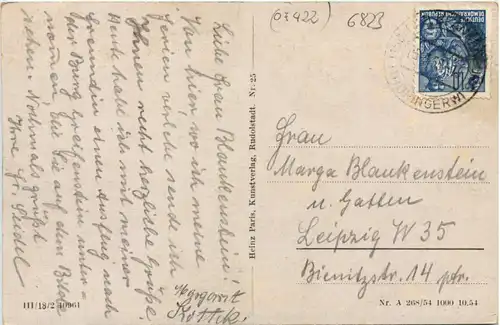 (OE422)
6823
Liebe Frau Blankenstein!
Von hier wo ich meine
Ferien verlebe sende ich
Ihnen recht herzliche Grüße.
Heute habe ich mit meiner
Freundin einen Ausflug nach
der Burg Greifenstein unter-
nommen, die Sie auf dem Bilde
sehen. Nochmals grüßt
Ihre Fr. Seidel
Margarit
Köttik.
III/18/2 10961
Heinz Paris, Kunstverlag, Rudolstadt. Nr. 25
DEUTSCHE
DEMOKRATISCHE REPUBLIK
10
Frau
Marga Blankenstein
u. Gatten
Leipzig W 35
Bienitzstr. 14 ptr.
Nr. A 268/54 1000 10.54